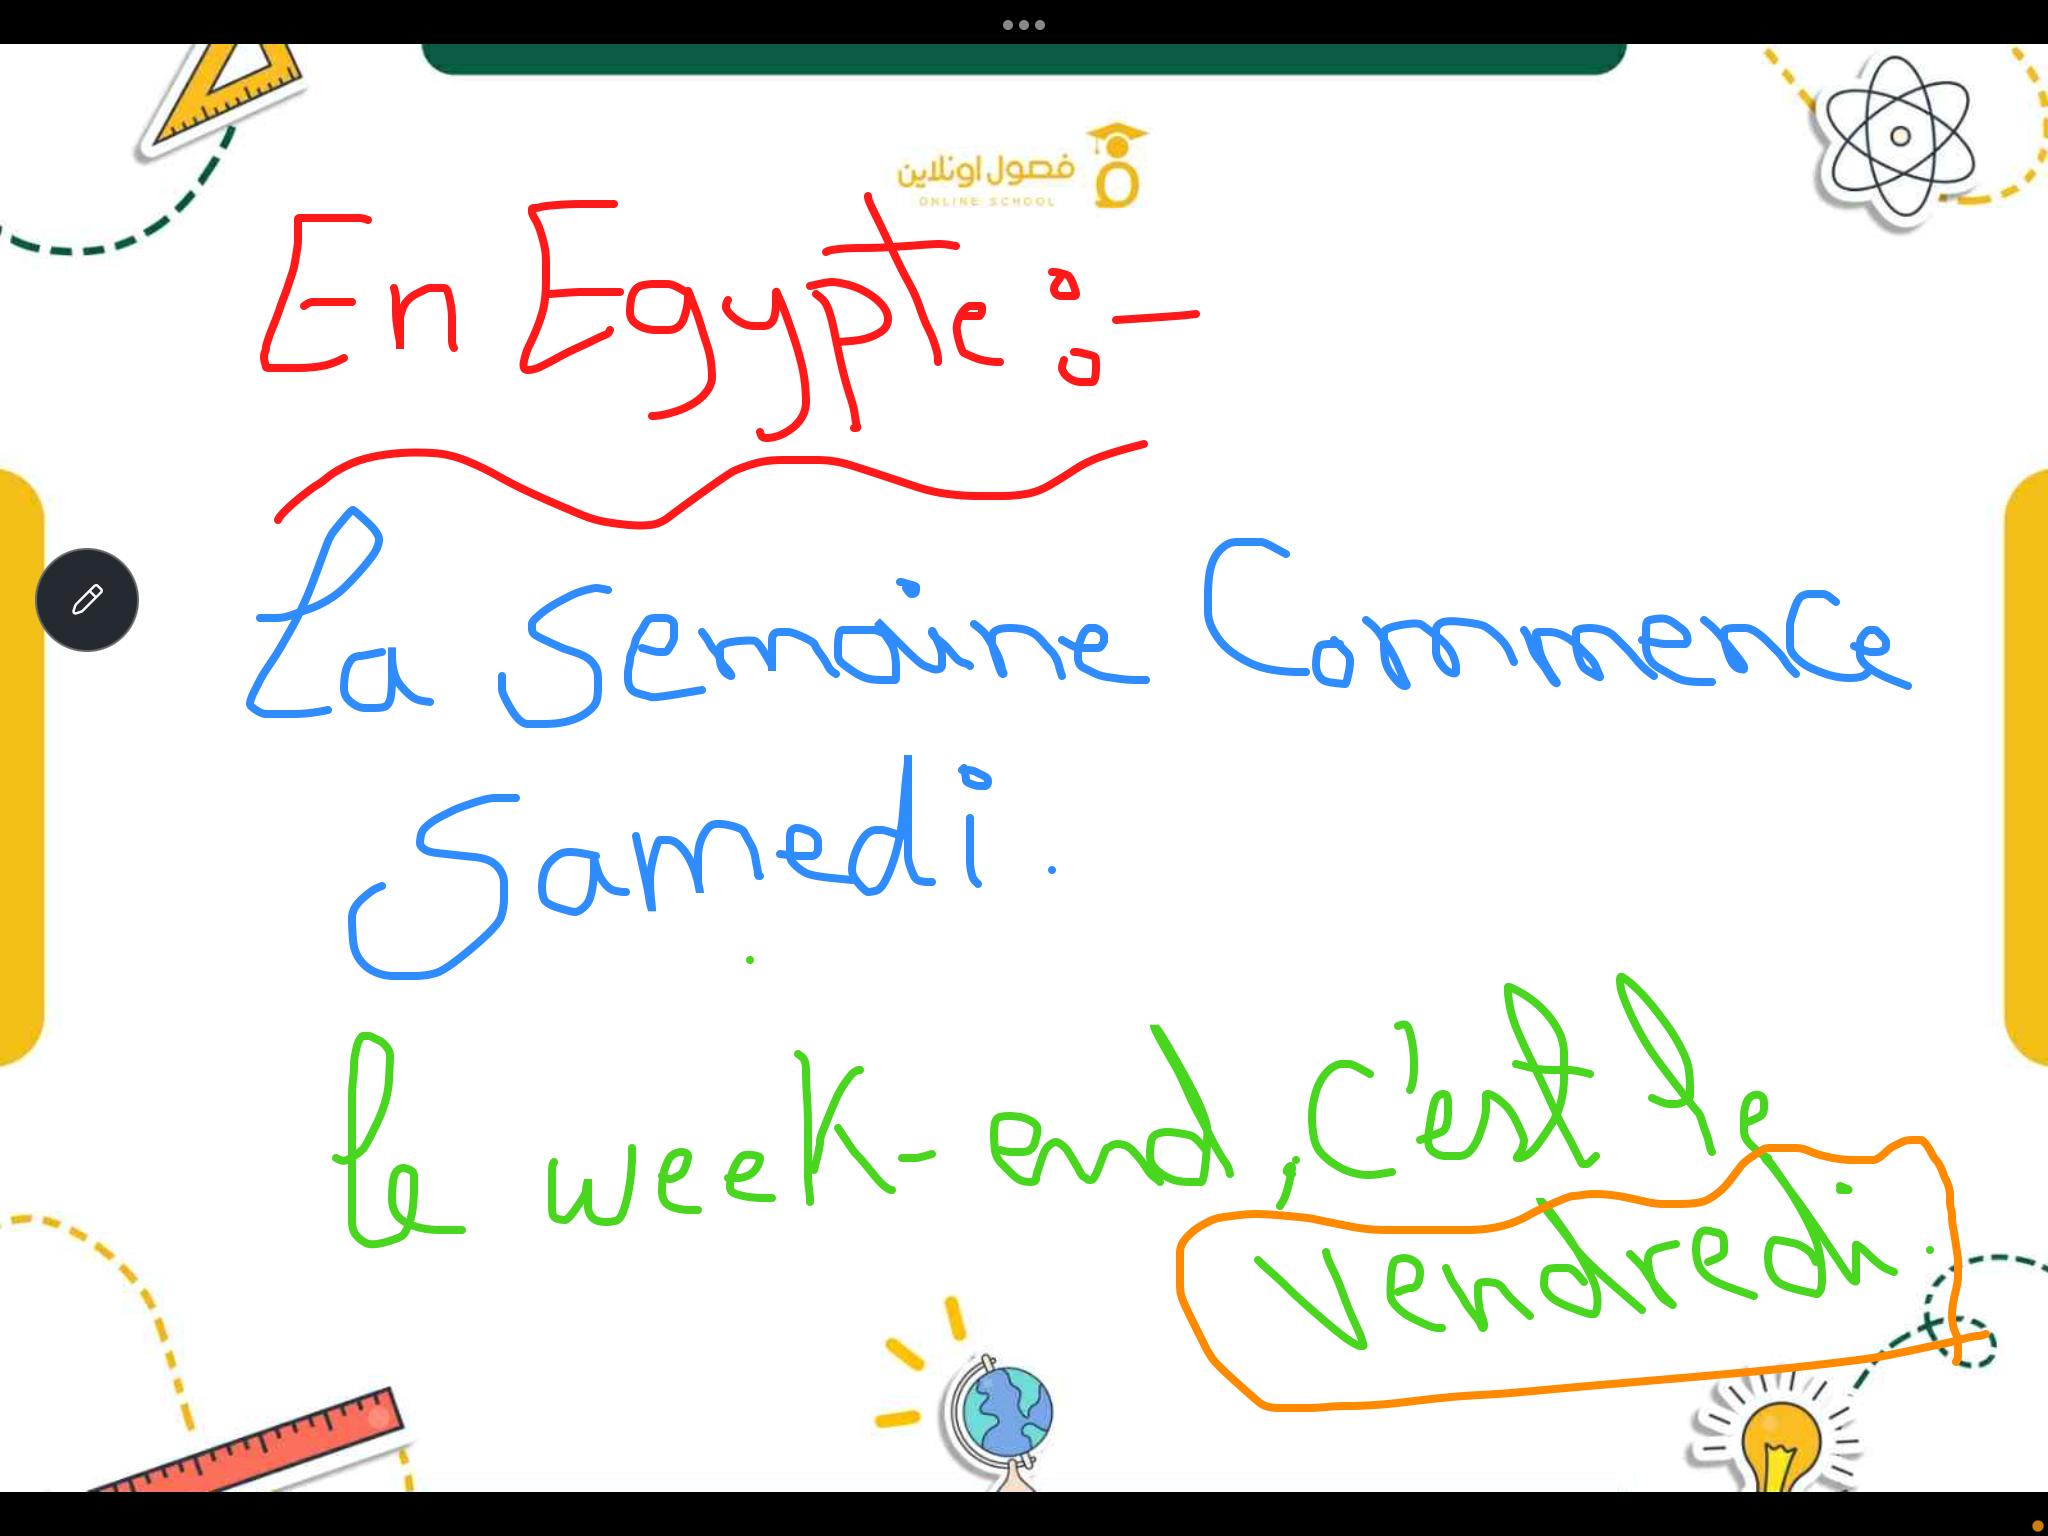 فصول اونلاين
ONLINE SCHOOL
En Egypte :-
La Semaine Commence
Samedi.
le week-end, c'est le
Vendredi.